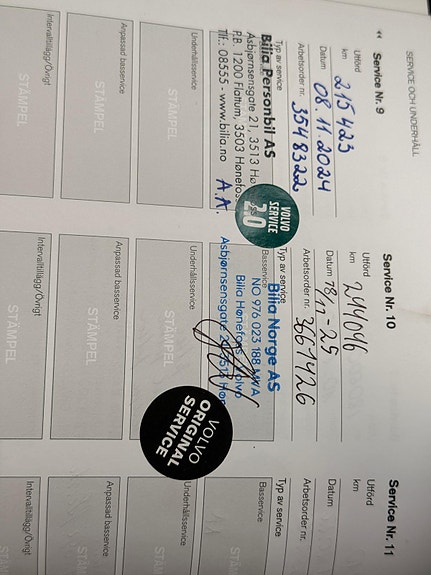 SERVICE OCH UNDERHÅLL
◂◂ Service Nr. 9
Utförd
km 215423
Datum 08.11.2024
Arbetsorder nr. 3548322
Typ av service
Bilia Personbil AS
Asbjørnsensgate 21, 3513 Høn
P.B. 1200 Flattum, 3503 Hønefos
Tlf.: 08555 - www.bilia.no
A.A.
VOLVO
SERVICE
2.0
Underhållsservice
STÄMPEL
Anpassad basservice
STÄMPEL
Intervalltillägg/Övrigt
STÄMPEL
Service Nr. 10
Utförd
km 244046
Datum 18/11-25
Arbetsorder nr. 3661426
Typ av service
Basservice
Bilia Norge AS
NO 976 023 188 MVA
Bilia Hønefoss Volvo
Asbjørnsensgate
Underhållsservice
STÄMPEL
VOLVO
ORIGINAL
SERVICE
Anpassad basservice
STÄMPEL
Intervalltillägg/Övrigt
STÄMPEL
Service Nr. 11
Utförd
km
Datum
Arbetsorder nr.
Typ av service
Basservice
STÄM
Underhållsservice
STÄM
Anpassad basservice
STÄM
Intervalltillägg/Övrigt
STÄM